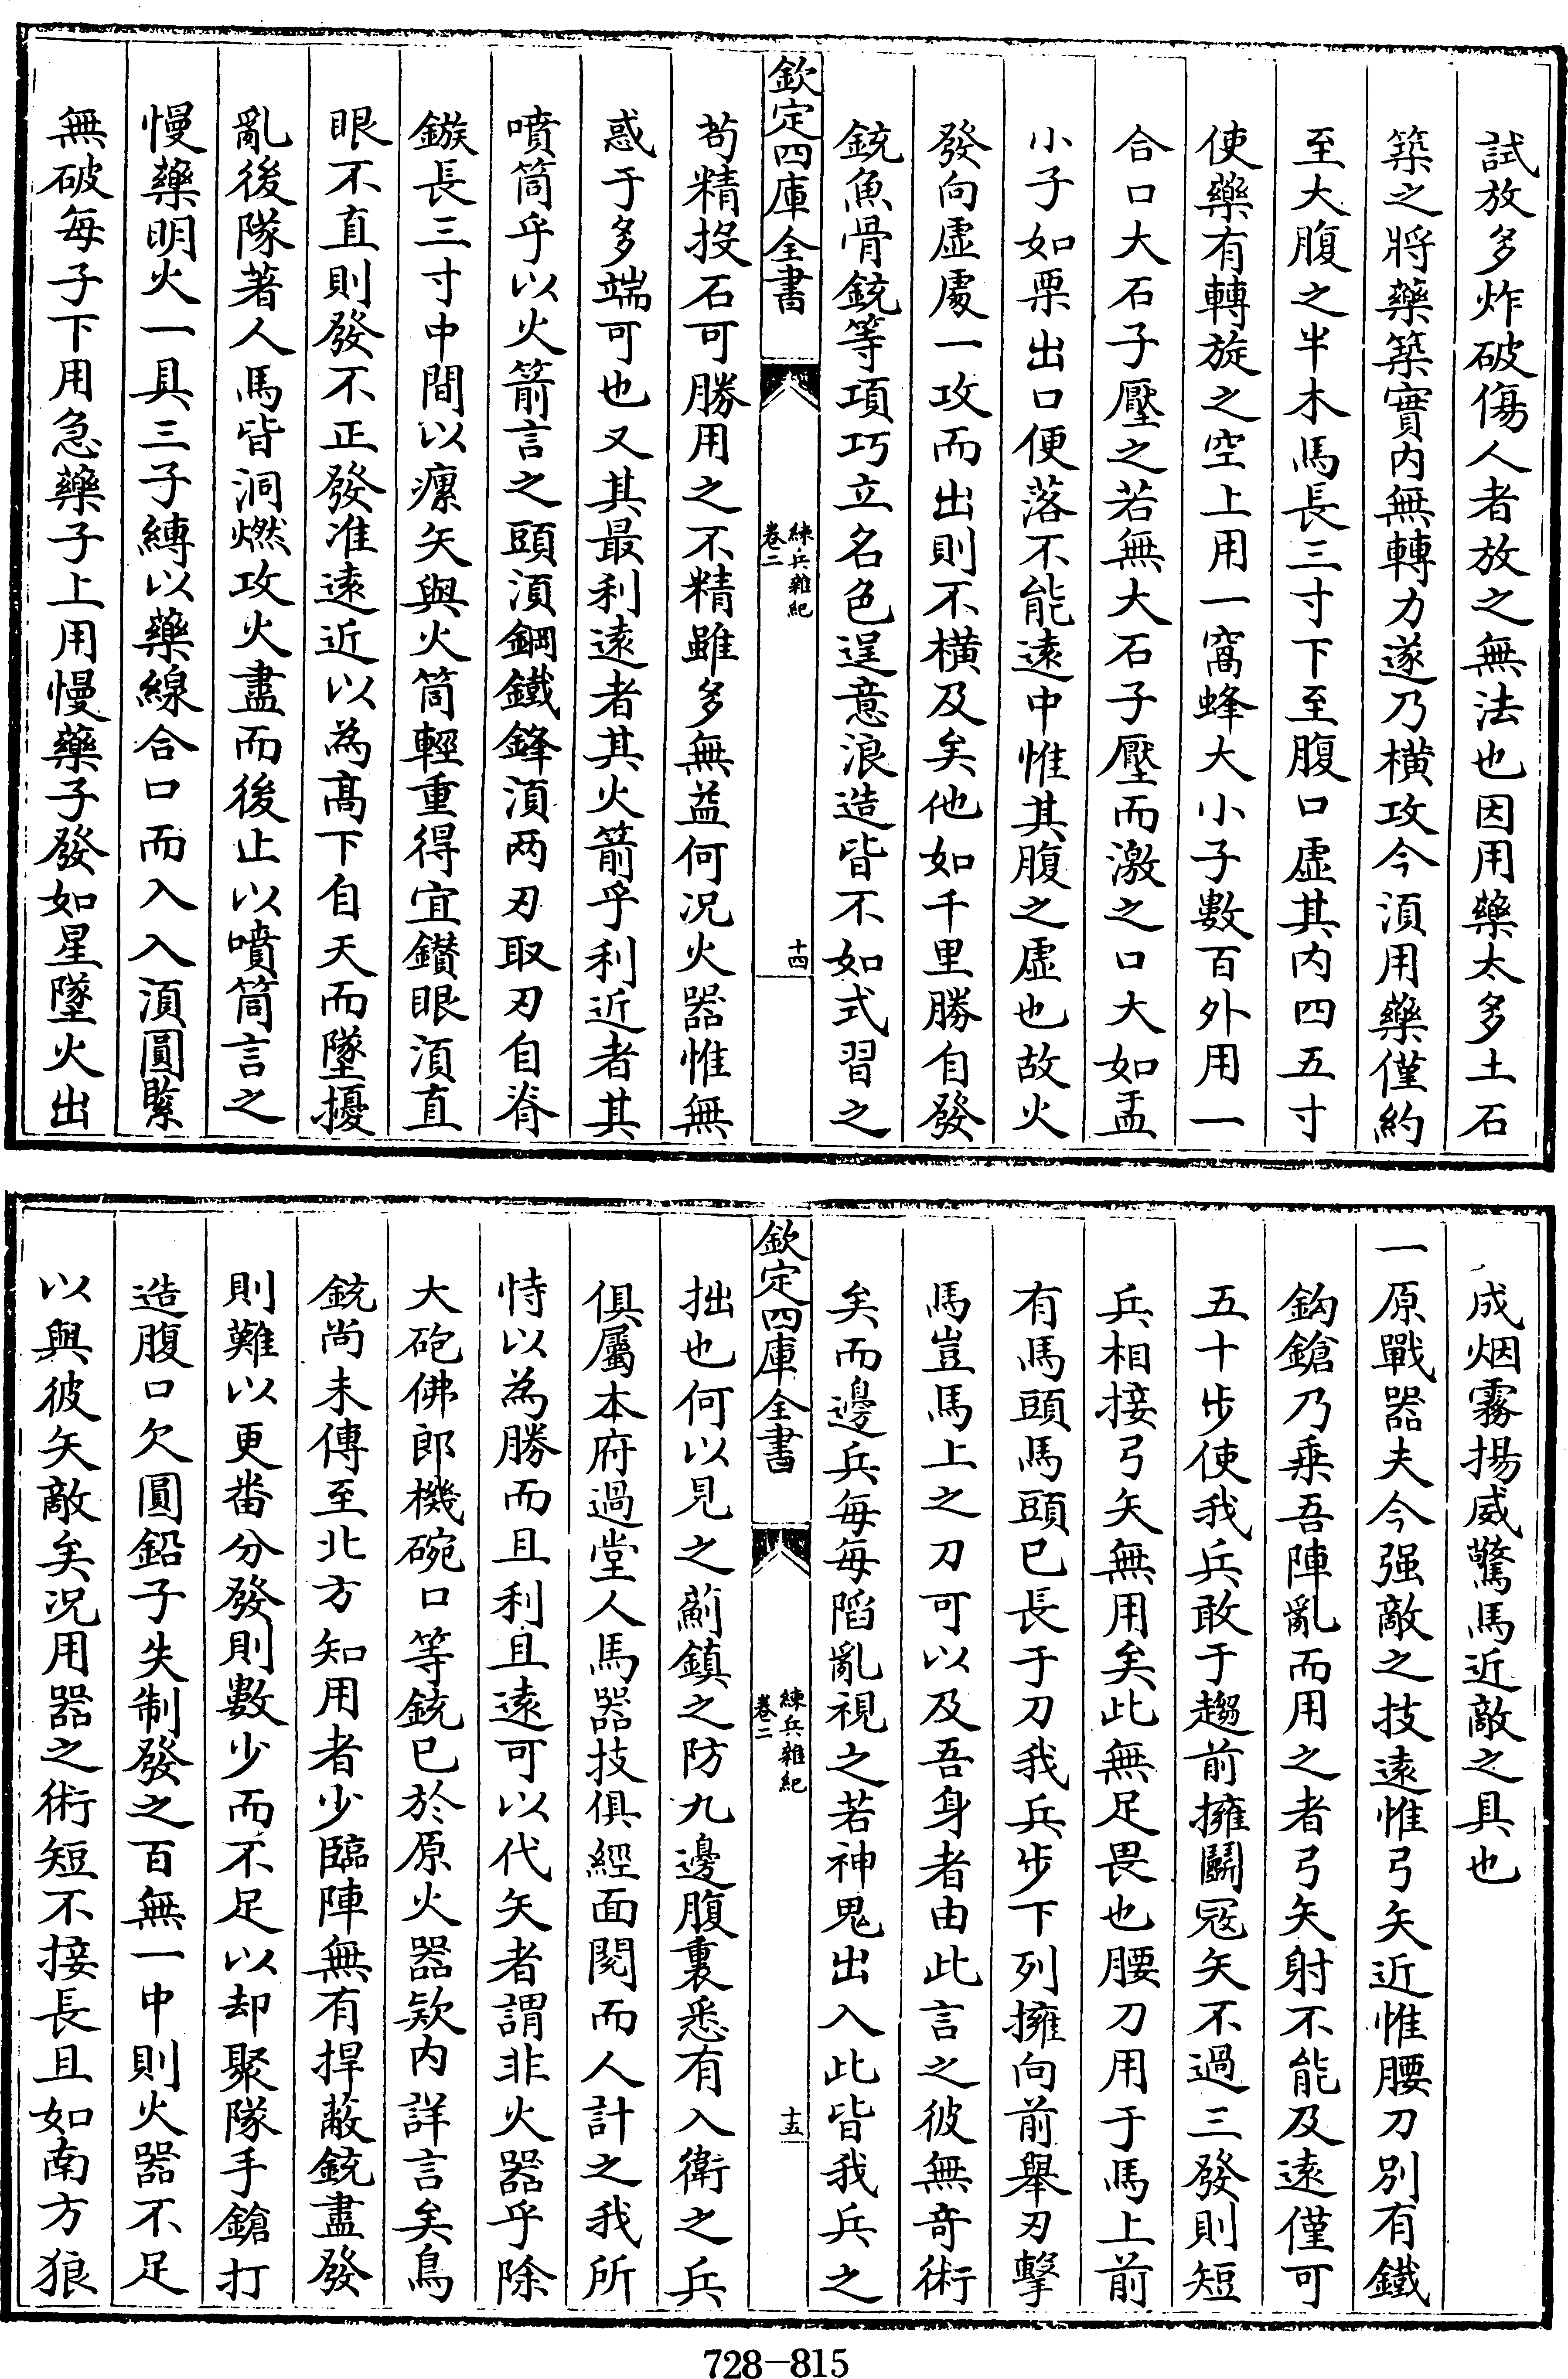 試放多炸破傷人者放之無法也因用藥太多土石
築之將藥築實内無轉力遂乃横攻今湏用藥僅約
至大腹之半木馬長三寸下至腹口虛其内四五寸
使藥有轉旋之空上用一窩蜂大小子數百外用一
合口大石子壓之若無大石子壓而激之口大如盂
小子如栗出口便落不能遠中惟其腹之虛也故火
發向虛處一攻而出則不横及矣他如千里勝自發
銃魚骨銃等項巧立名色逞意浪造皆不如式習之
欽定四庫全書
練兵雜紀
卷二
十四
苟精投石可勝用之不精雖多無益何况火器惟無
惑于多端可也又其最利遠者其火箭乎利近者其
噴筒乎以火箭言之頭湏鋼鐵鋒湏两刃取刃自脊
鏃長三寸中間以瘰矢與火筒輕重得宜鑚眼湏直
眼不直則發不正發准遠近以為髙下自天而墜擾
亂後隊著人馬皆洞燃攻火盡而後止以噴筒言之
慢藥明火一具三子縳以藥線合口而入入湏圓緊
無破每子下用急藥子上用慢藥子發如星墜火出
成烟霧揚威驚馬近敵之具也
一原戰器夫今强敵之技遠惟弓矢近惟腰刀別有鐵
鈎鎗乃乗吾陣亂而用之者弓矢射不能及遠僅可
五十步使我兵敢于趨前擁鬭冦矢不過三發則短
兵相接弓矢無用矣此無足畏也腰刀用于馬上前
有馬頭馬頭已長于刀我兵步下列擁向前舉刃擊
馬豈馬上之刀可以及吾身者由此言之彼無竒術
矣而邊兵每每䧟亂視之若神鬼出入此皆我兵之
欽定四庫全書
練兵雜紀
卷二
十五
拙也何以見之薊鎮之防九邊腹裏悉有入衛之兵
俱屬本府過堂人馬器技俱經面閲而人計之我所
恃以為勝而且利且遠可以代矢者謂非火器乎除
大砲佛郎機碗口等銃已於原火器欵内詳言矣鳥
銃尚未傳至北方知用者少臨陣無有捍蔽銃盡發
則難以更畨分發則數少而不足以却聚隊手鎗打
造腹口欠圓鉛子失制發之百無一中則火器不足
以與彼矢敵矣况用器之術短不接長且如南方狼
728-815